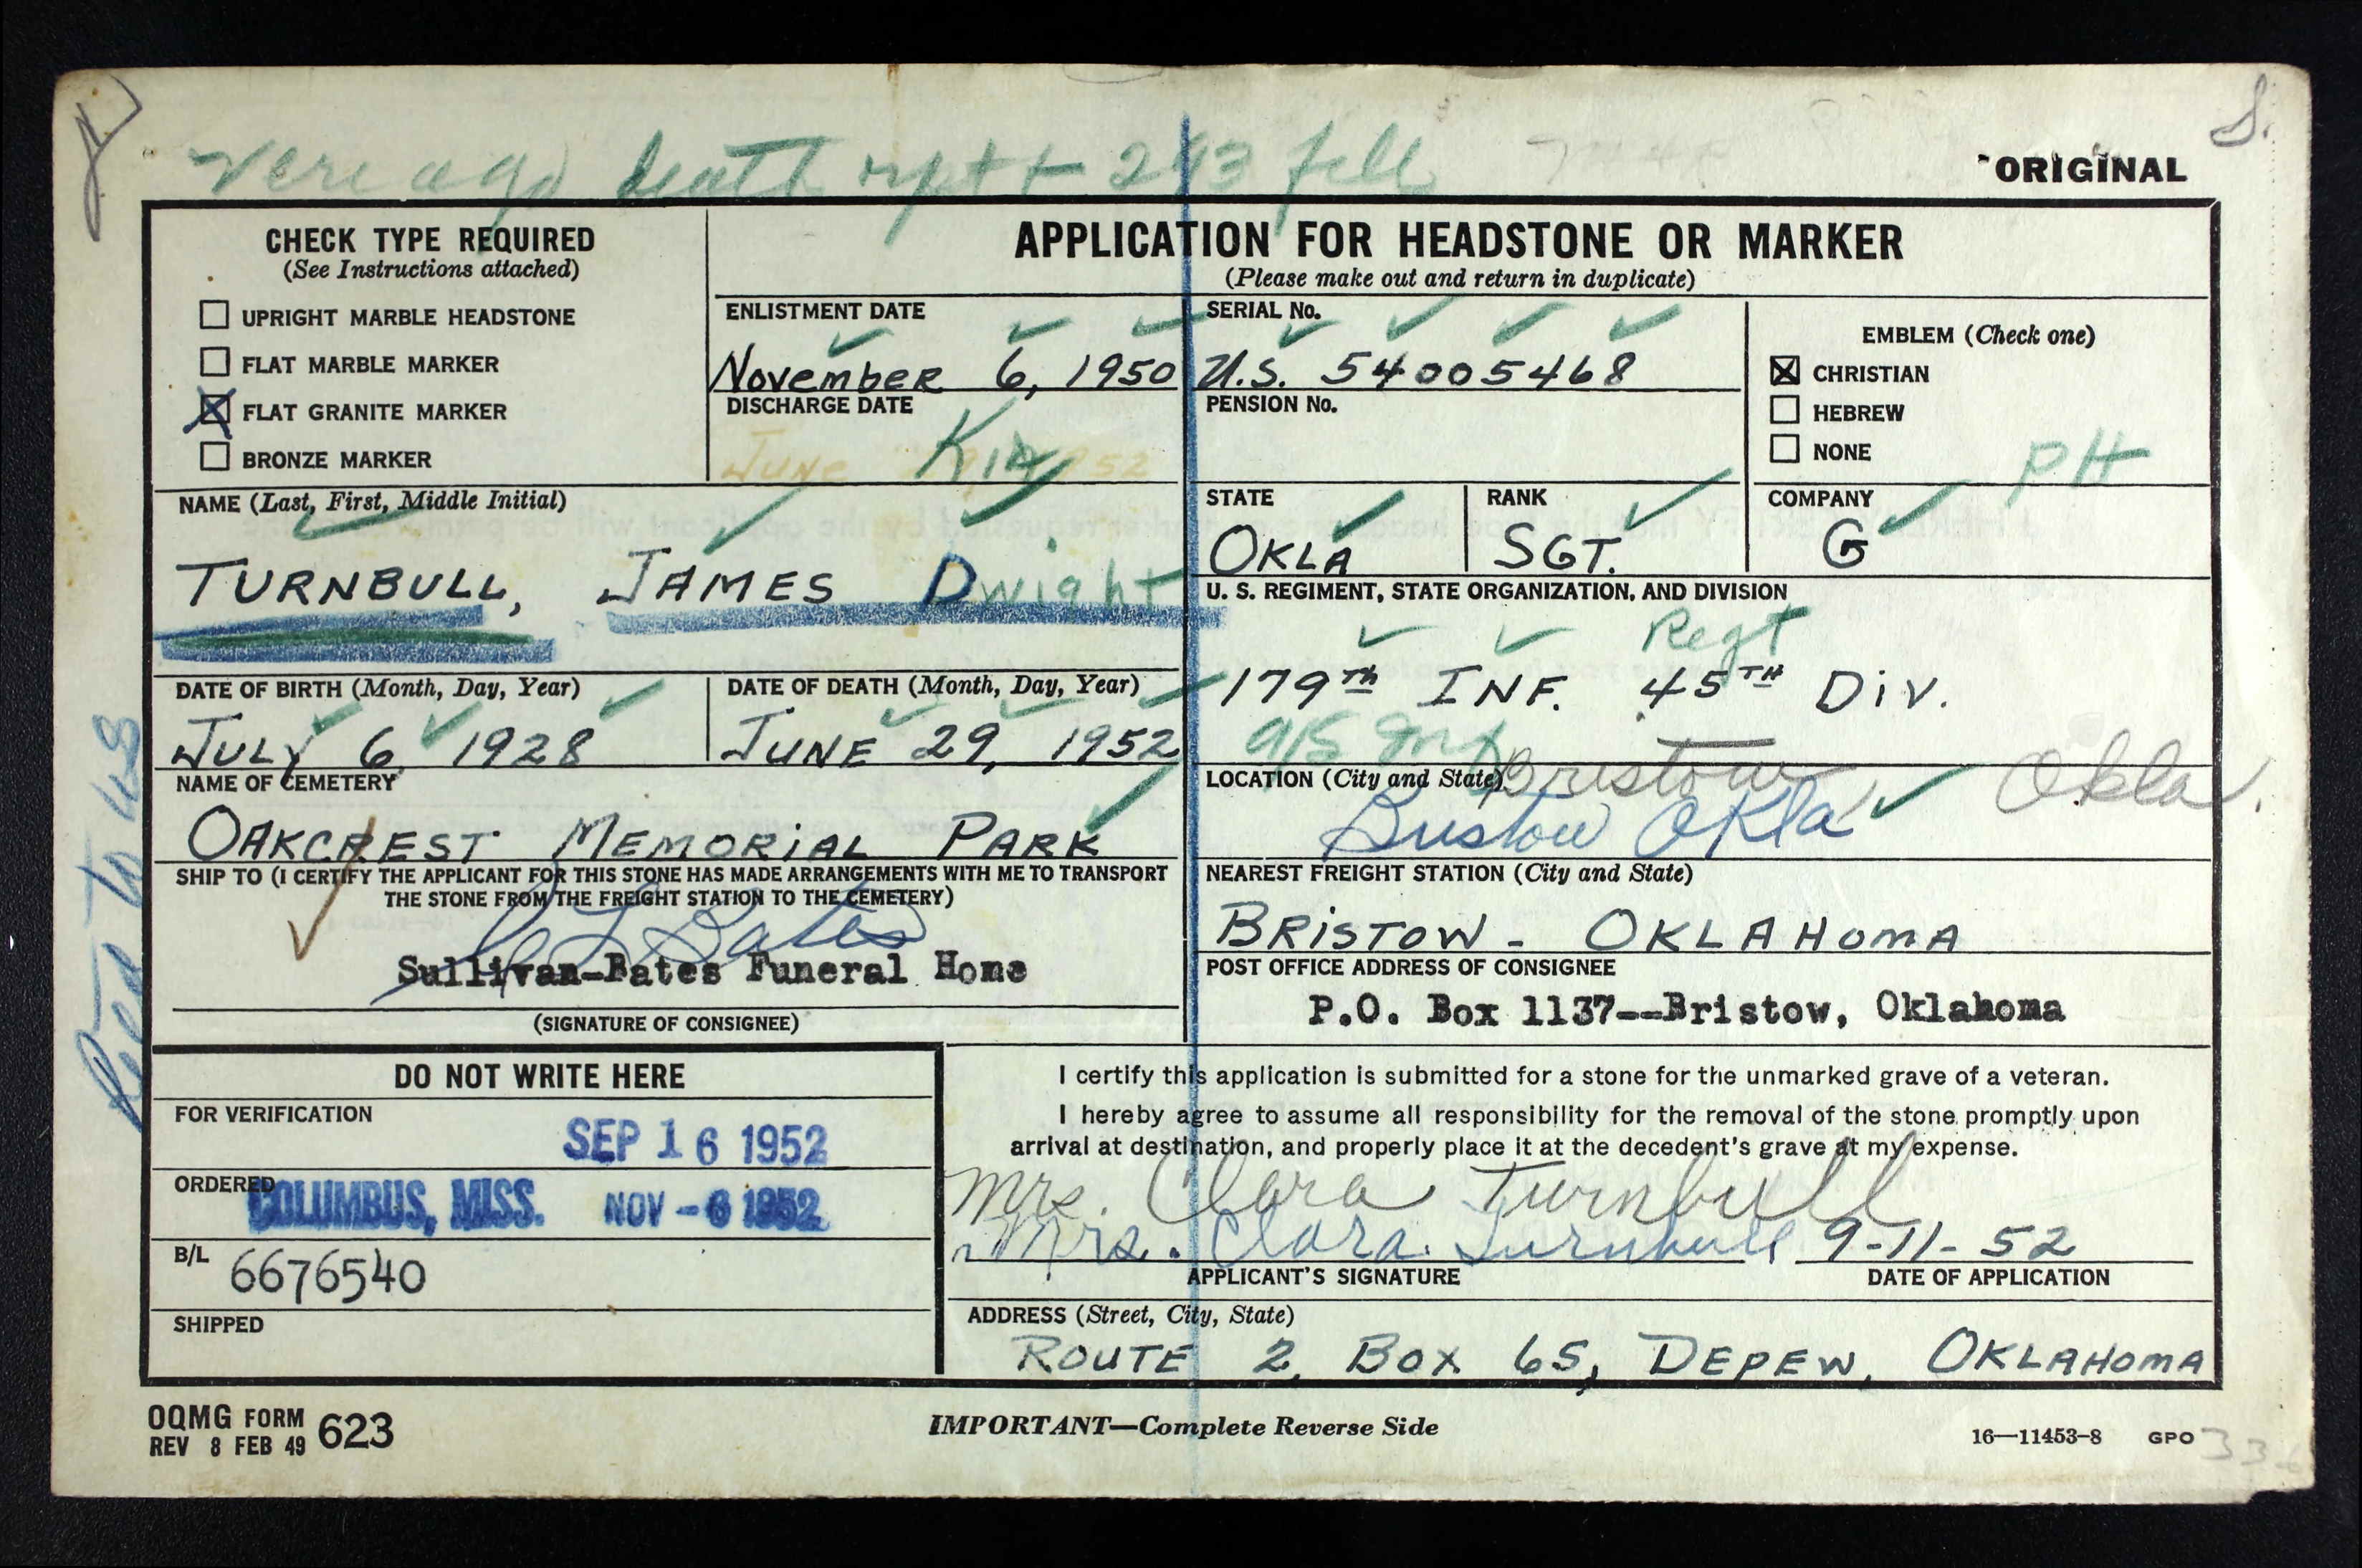 death rpt + 293
ORIGINAL
CHECK TYPE REQUIRED
(See Instructions attached)
☐ UPRIGHT MARBLE HEADSTONE
☐ FLAT MARBLE MARKER
☒ FLAT GRANITE MARKER
☐ BRONZE MARKER
APPLICATION FOR HEADSTONE OR MARKER
(Please make out and return in duplicate)
ENLISTMENT DATE
November 6, 1950
DISCHARGE DATE
JUNE 1952
KIA
SERIAL No.
U.S. 54005468
PENSION No.
EMBLEM (Check one)
☒ CHRISTIAN
☐ HEBREW
☐ NONE
PH
NAME (Last, First, Middle Initial)
TURNBULL, JAMES Dwight
STATE
OKLA
RANK
SGT.
COMPANY
G
U. S. REGIMENT, STATE ORGANIZATION, AND DIVISION
Regt
179TH INF. 45TH DIV.
DATE OF BIRTH (Month, Day, Year)
JULY 6, 1928
DATE OF DEATH (Month, Day, Year)
JUNE 29, 1952
NAME OF CEMETERY
OAKCREST MEMORIAL PARK
LOCATION (City and State)
Bristow Okla.
Bristow Okla
SHIP TO (I CERTIFY THE APPLICANT FOR THIS STONE HAS MADE ARRANGEMENTS WITH ME TO TRANSPORT
THE STONE FROM THE FREIGHT STATION TO THE CEMETERY)
Bates
Sullivan-Bates Funeral Home
(SIGNATURE OF CONSIGNEE)
NEAREST FREIGHT STATION (City and State)
BRISTOW - OKLAHOMA
POST OFFICE ADDRESS OF CONSIGNEE
P.O. Box 1137--Bristow, Oklahoma
DO NOT WRITE HERE
FOR VERIFICATION
SEP 16 1952
ORDERED
COLUMBUS, MISS. NOV -6 1952
B/L 6676540
SHIPPED
I certify this application is submitted for a stone for the unmarked grave of a veteran.
I hereby agree to assume all responsibility for the removal of the stone promptly upon
arrival at destination, and properly place it at the decedent's grave at my expense.
Mrs. Clara Turnbull
Mrs. Clara Turnbull 9-11-52
APPLICANT'S SIGNATURE
DATE OF APPLICATION
ADDRESS (Street, City, State)
ROUTE 2, BOX 65, DEPEW, OKLAHOMA
OQMG FORM 623
REV 8 FEB 49
IMPORTANT—Complete Reverse Side
16—11453-8 GPO